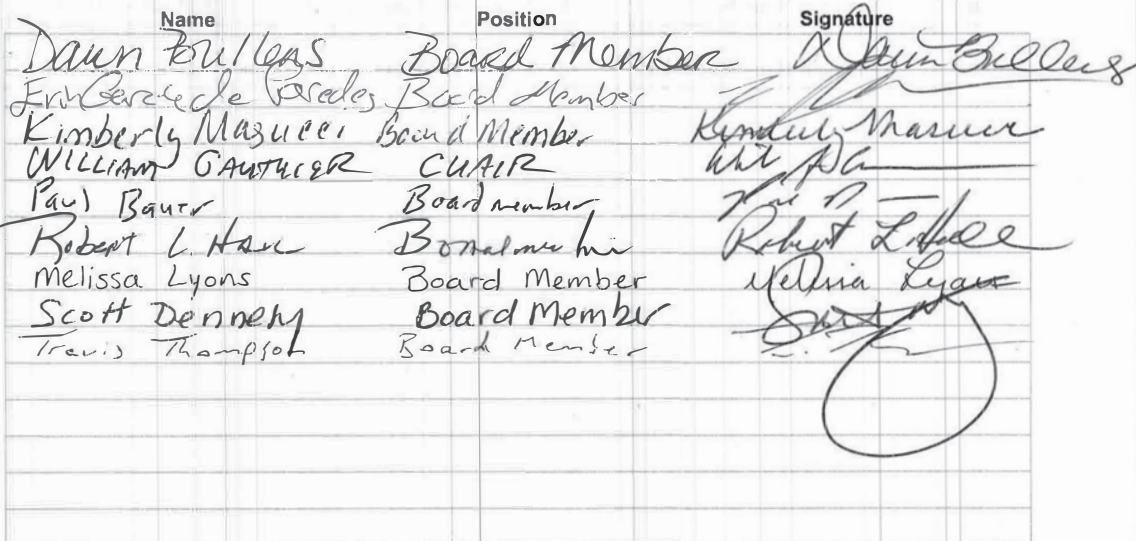 Name Position Signature
Dawn Bullens Board Member Dawn Bullens
Erin Garcia de Paredes Board Member
Kimberly Masucci Board Member Kimberly Masucci
WILLIAM GAUTHIER CHAIR
Paul Bauer Board member
Robert L. Robert L.
Melissa Lyons Board Member Melissa Lyons
Scott Dennehy Board Member
Travis Thompson Board Member